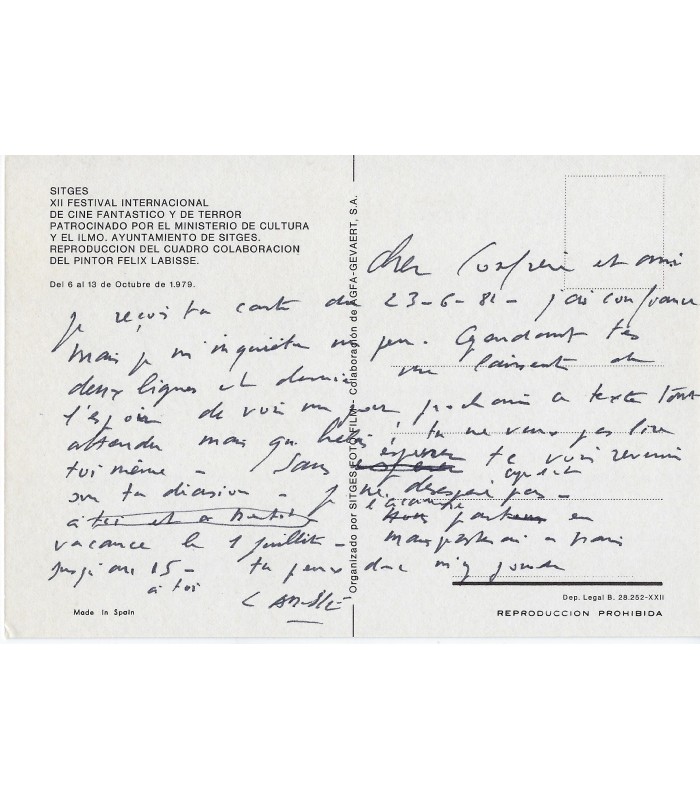 SITGES
XII FESTIVAL INTERNACIONAL
DE CINE FANTASTICO Y DE TERROR
PATROCINADO POR EL MINISTERIO DE CULTURA
Y EL ILMO. AYUNTAMIENTO DE SITGES.
REPRODUCCION DEL CUADRO COLABORACION
DEL PINTOR FELIX LABISSE.
Del 6 al 13 de Octubre de 1.979.
Organizado por SITGES FOTO-FILM - Colaboración de AGFA-GEVAERT, S.A.
Cher et ami
je reçois ta carte du 23-6-81 - j'ai confiance
mais je m'inquiète un peu. tes
deux lignes et me laissent
l'espoir de voir un jour prochain texte tant
attendu mais que tu ne veux pas lire
toi même - Sans espérer te voir revenir
sur ta décision - je ne désespère pas -
à toi et a en
vacance le 1 juillet - mais à Paris
jusqu'au 15 - tu peux donc m'y joindre
à toi
LABISSE
Made in Spain
Dep. Legal B. 28.252-XXII
REPRODUCCION PROHIBIDA